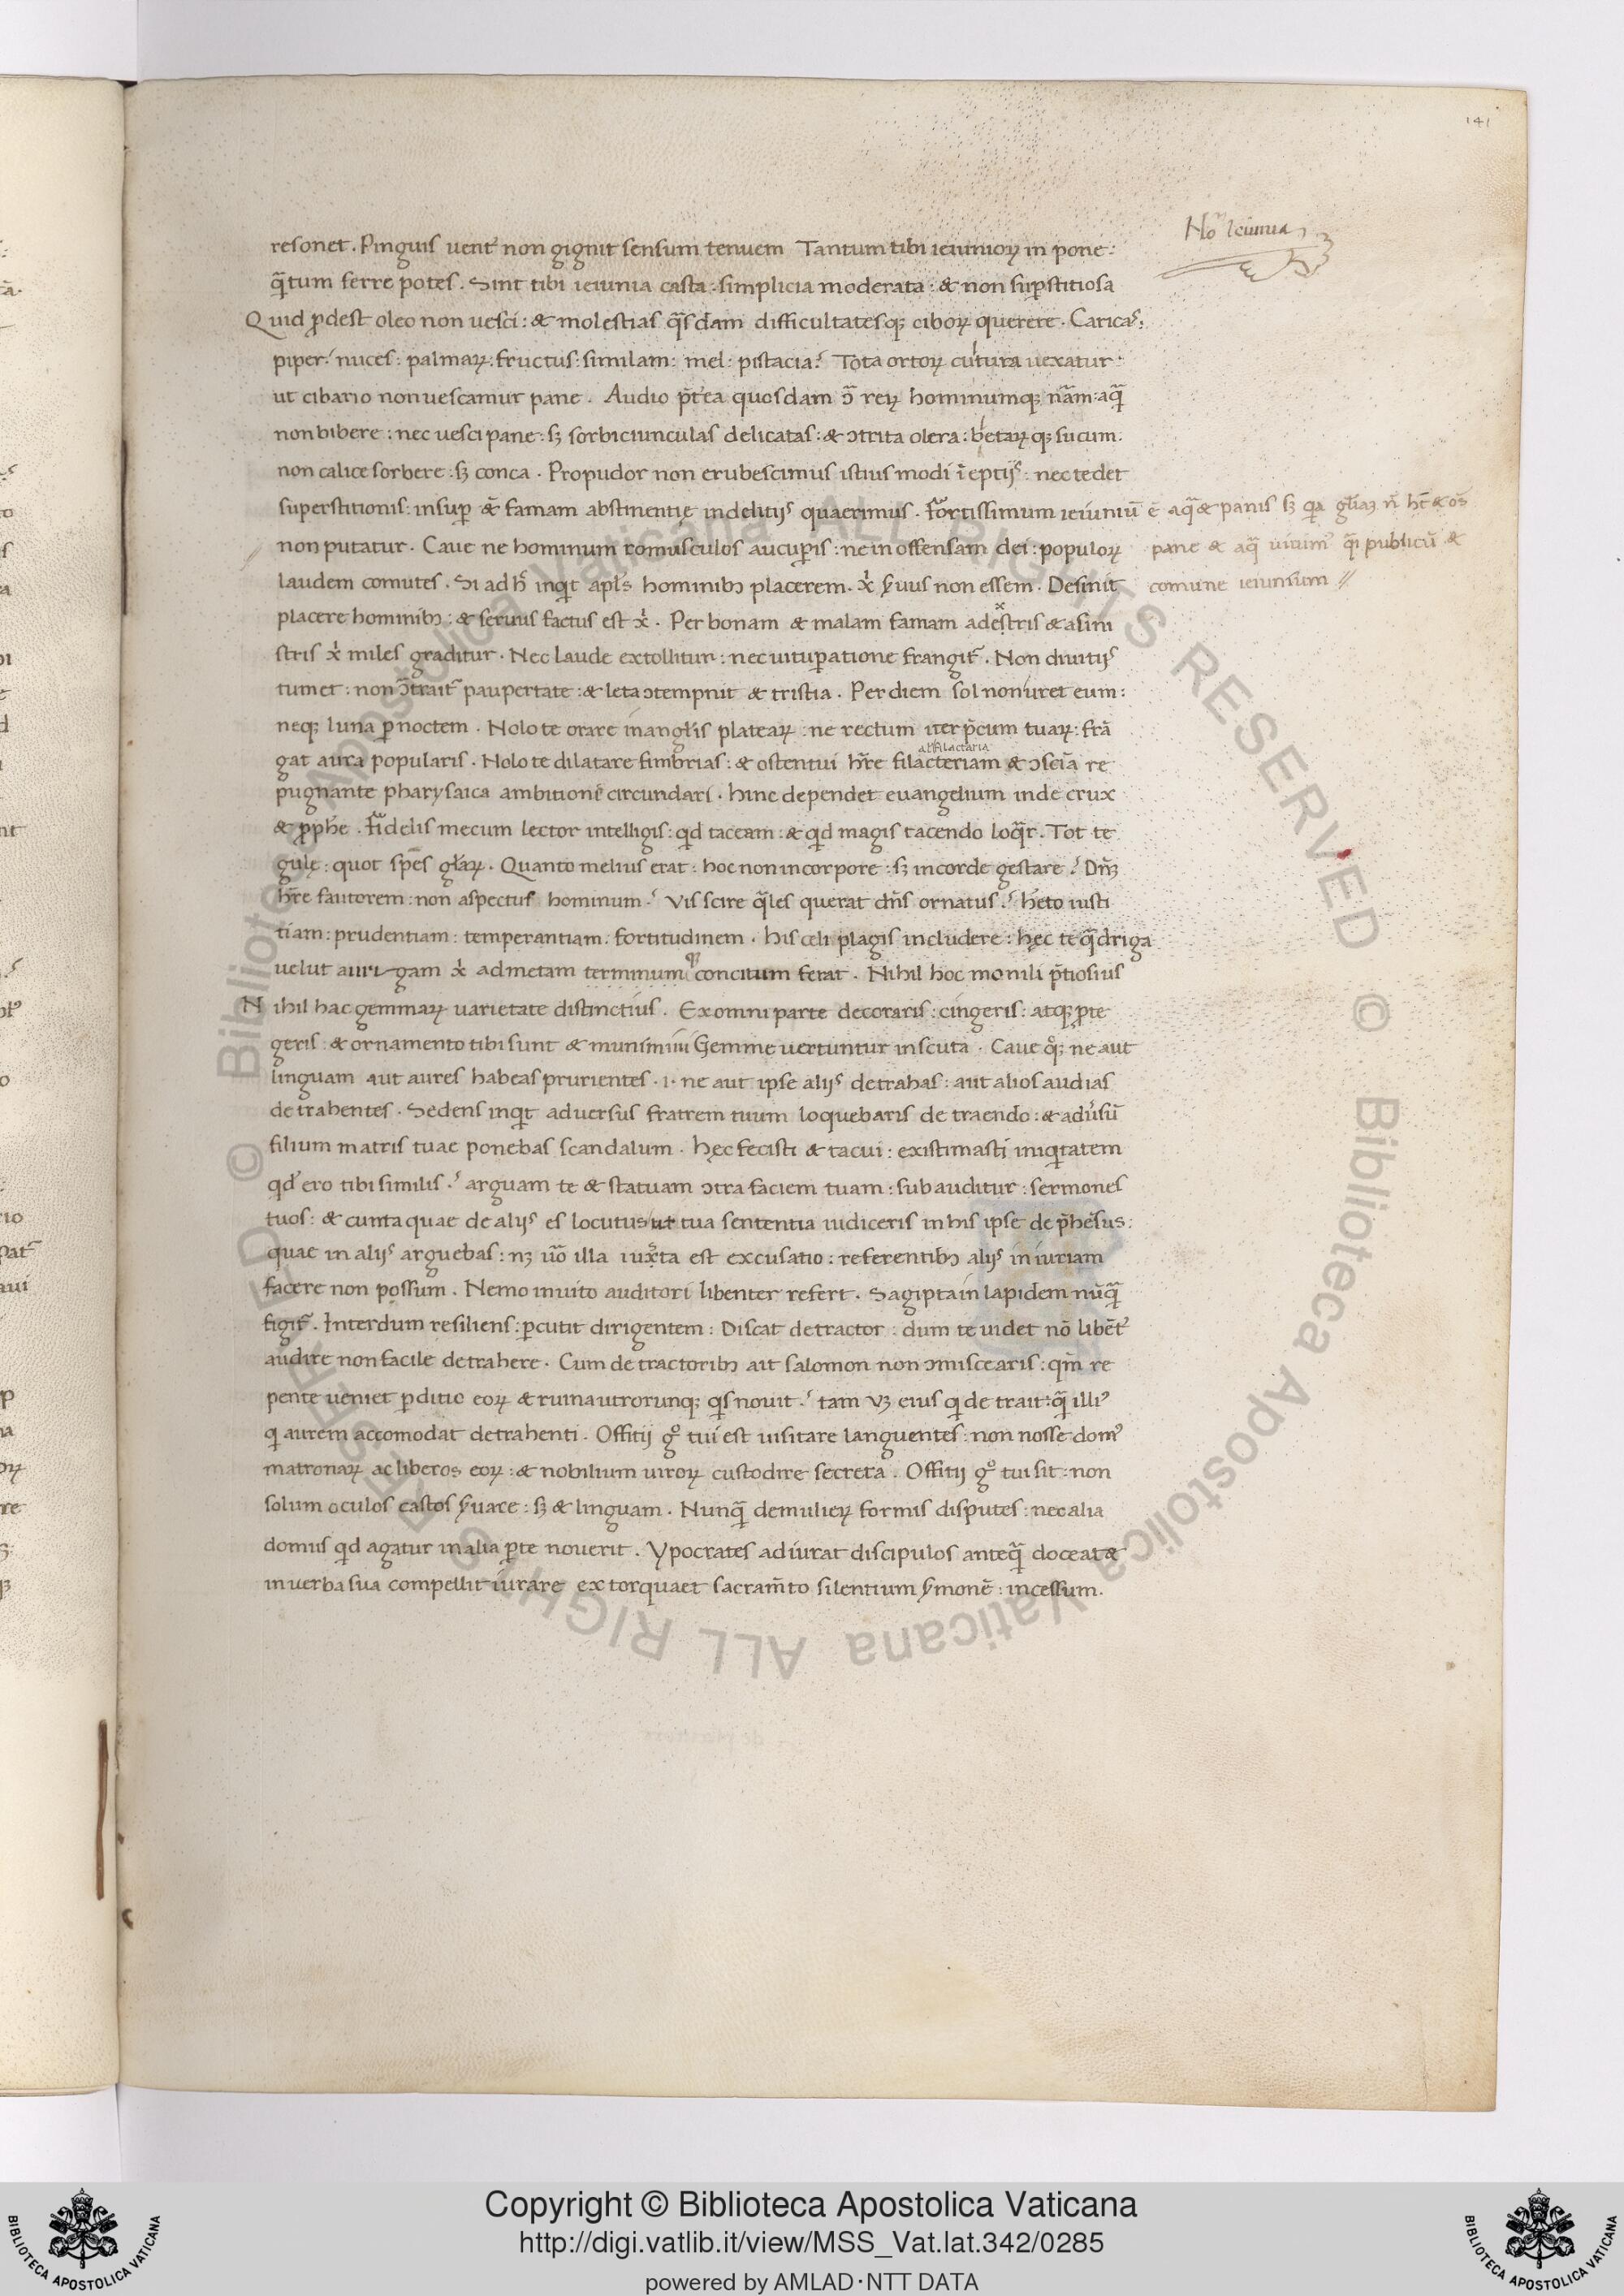 141
No iciunia
resonet. Pinguis uent᷒ non gignit sensum tenuem Tantum tibi ieiunioꝝ in pone:
q̄tum ferre potes. Sint tibi ieiunia casta: simplicia moderata: & non sup̱stitiosa
Quid ꝓdest oleo non uesci: & molestias q̄sdam difficultatesqꝫ ciboꝝ querere. Caricas:
piper: nuces: palmaꝝ: fructus: similam: mel: pistacia? Tota ortoꝝ cultura uexatur:
ut cibario non uescamur pane. Audio p̄t̓ea quosdam ꝯ̄ reꝝ hominumqꝫ nām: aq̄
non bibere: nec uesci pane: sꝫ sorbiciunculas delicatas: & ꝯtrita olera: betaꝝ qꝫ sucum:
non calice sorbere: sꝫ conca. Propudor non erubescimus istius modi ī eptijs: nec tedet
superstitionis: insuꝑ & famam abstinentię indelitijs quaerimus. Fortissimum ieiuniū ē aq̄ & panis sꝫ qa gl̄iaꝫ n̄ ht̄ & oēs
non putatur. Caue ne hominum romusculos aucuꝑis: ne in offensam dei: populoꝝ pane & aq̄ uiuim᷒ q̄i publicū &
laudem comutes. Si ad hͨ inqͥt apl̄s hominibꝰ placerem. xͥ ẜuus non essem. Desinit comune ieiunium //
placere hominibꝰ: & seruus factus est xͥ. Per bonam & malam famam adestris & asini
x
stris xͥ miles graditur. Nec laude extollitur: nec uituꝑatione frangit᷒. Non diuitijs
tumet: non ꝯ̄trait᷒ paupertate: & leta ꝯtempnit & tristia. Per diem sol non uret eum:
neqꝫ luna ꝑ noctem. Nolo te orare in angl̄is plateaꝝ: ne rectum iter p̄cum tuaꝝ: frā
al filactaria
gat aura popularis. Nolo te dilatare fimbrias: & ostentui hr̄e filacteriam & ꝯsciā re
pugnante pharysaica ambitione circundari. hinc dependet euangelium inde crux
& ꝓphe. Fidelis mecum lector intelligis: qͥd taceam: & qͥd magis tacendo loq̄r. Tot te
gulę: quot sp̄es gl̄iaꝝ. Quanto melius erat: hoc non incorpore: sꝫ incorde gestare? Dn̄ꝫ
hr̄e fautorem: non aspectus hominum? Vis scire q̄les querat dn̄s ornatus? hēto iusti
tiam: prudentiam: temperantiam. fortitudinem. his celi plagis includere: hęc te q̄driga
uelut auri-gam xͥ admetam terminum concitum ferat. Nihil hoc monili p̄tiosius
Nihil hac gemmaꝝ uarietate distinctius. Ex omni parte decoraris: cingeris: atqꝫ ꝓte
geris: & ornamento tibi sunt & munimini Gemme uertuntur inscuta. Caue qͦꝫ ne aut
linguam aut aures habeas prurientes. i. ne aut ipse alijs detrahas: aut alios audias
detrahentes. Sedens inqͥt aduersus fratrem tuum loquebaris de traendo: & adu̓sū
filium matris tuae ponebas scandalum. hęc fecisti & tacui: existimasti iniqͥtatem
qd̄ ero tibi similis? arguam te & statuam ꝯtra faciem tuam: sub auditur: sermones
tuos: & cunta quae de alijs es locutus/ut tua sententia iudiceris in his ipse de p̄hēsus:
quae in alijs arguebas: nꝫ uͦ illa iuxta est excusatio: referentibꝰ alijs in iuriam
facere non possum. Nemo inuito auditori libenter refert. Sagipta in lapidem nūq̄
figit᷒. Interdum resiliens: ꝑcutit dirigentem: Discat detractor: dum te uidet nō libēt᷒
audire non facile detrahere. Cum de tractoribꝰ ait salomon non ꝯmiscearis: qm̄ re
pente ueniet ꝑditio eoꝝ & ruina utrorunqꝫ qͥs nouit? tam uꝫ eius qͥ de trait: q̄ illiꝰ
qͥ aurem accomodat detrahenti. Offitij gͦ tui est uisitare languentes: non nosse domꝰ
matronaꝝ ac liberos eoꝝ: & nobilium uiroꝝ custodire secreta. Offitij gͦ tui sit: non
solum oculos castos ẜuare: sꝫ & linguam. Nunq̄ de mulieꝝ formis disputes: nec alia
domus qͥd agatur in alia ꝑte nouerit. Ypocrates adiurat discipulos anteq̄ doceat &
in uerba sua compellit iurare ex torquaet sacram̄to silentium ẜmonē: incessum.
© Biblioteca Apostolica Vaticana ALL RIGHTS RESERVED © Biblioteca Apostolica Vaticana ALL RIGHTS RESERVED
Copyright © Biblioteca Apostolica Vaticana
http://digi.vatlib.it/view/MSS_Vat.lat.342/0285
powered by AMLAD·NTT DATA
BIBLIOTECA APOSTOLICA VATICANA
BIBLIOTECA APOSTOLICA VATICANA